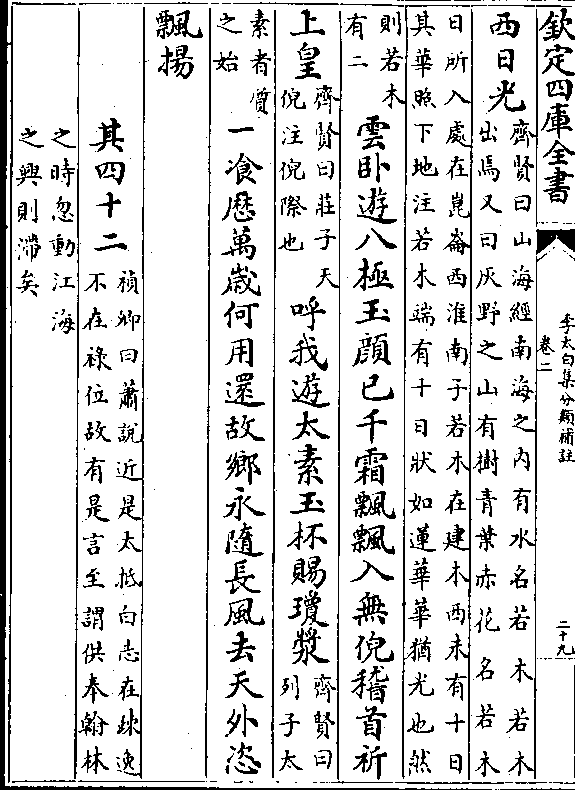 欽定四庫全書
李太白集分類補註
卷二
二十九
西日光
齊賢曰山海經南海之内有水名若木若木
出焉又曰灰野之山有樹青葉赤花名若木
日所入處在崑崙西淮南子若木在建木西末有十日
其華照下地注若木端有十日狀如蓮華華猶光也然
則若木
有二
雲卧遊八極玉顔已千霜飄飄入無倪稽首祈
上皇
齊賢曰莊子天
倪注倪際也
呼我遊太素玉杯賜瓊漿
齊賢曰
列子太
素者質
之始
一飡歴萬歳何用還故鄉永隨長風去天外恣
飄揚
其四十二
禎卿曰蕭說近是太抵白志在疎逸
不在祿位故有是言至謂供奉翰林
之時忽動江海
之興則滯矣